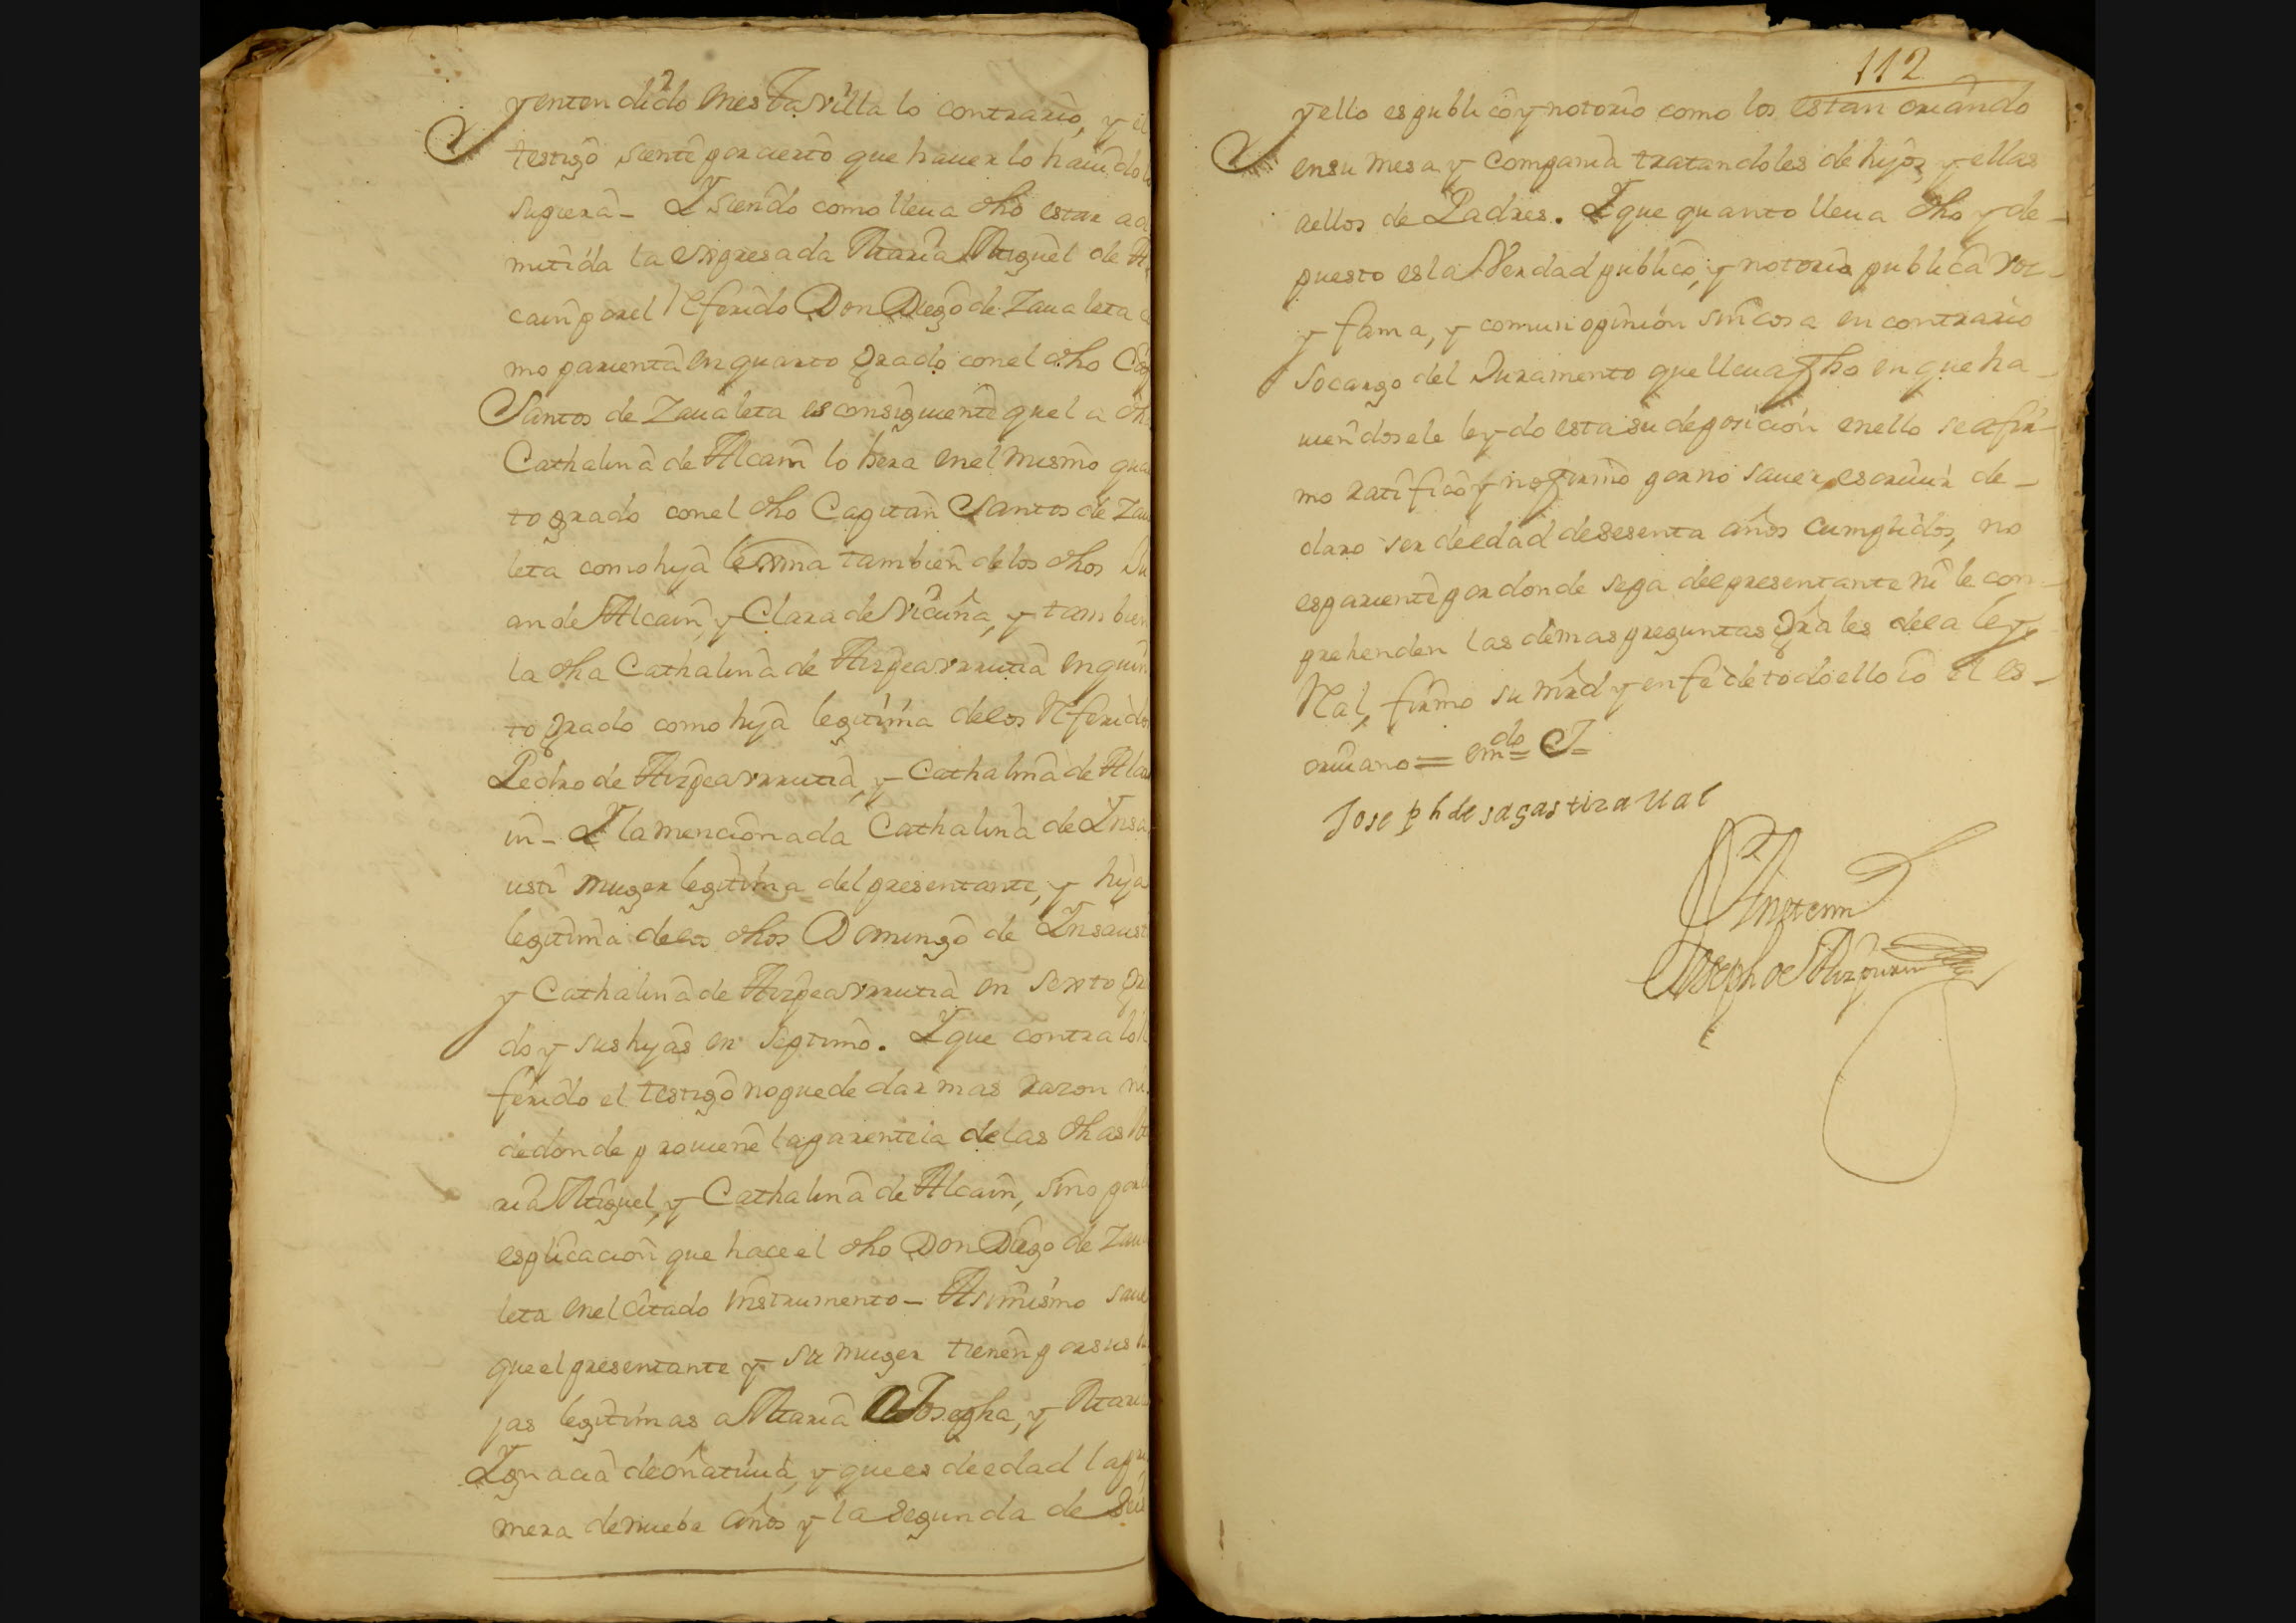 y entendido en esta villa lo contrario, y el
testigo siente por cierto que hauerlo hauido lo
supiera - Y siendo como lleua dho estar ad
mitida la expresada Maria Miguel de Al
cain por el Referido Don Diego de Zaualeta co
mo parienta en quarto grado con el dho Cap
Santos de Zaualeta es consiguiente que la dha
Cathalina de Alcain lo hera en el mismo quar
to grado con el dho Capitan Santos de Zaua
leta como hija lexma tambien de los dhos Ju
an de Alcain, y Clara de Vicuña, y tambien
la dha Cathalina de Aizpeavrrutia en quin
to grado como hija legitima de los Referidos
Pedro de Aizpeavrrutia, y Cathalina de Alca
in - Y la mencionada Cathalina de Insa
usti muger legitima del presentante, y hija
legitima de los dhos Domingo de Insausti
y Cathalina de Aizpeavrrutia en sexto gra
do y sus hijas en septimo. Y que contra lo Re
ferido el testigo no puede dar mas razon ni
de donde prouiene la parentela de las dhas Ma
ria Miguel, y Cathalina de Alcain, sino por la
esplicacion que hace el dho Don Diego de Zaua
leta en el citado instrumento - Asimismo saue
que el presentante y su muger tienen por sus hi
jas legitimas a Maria Josepha, y Maria
Ignacia de oñatiuia, y que es de edad la pri
mera de nueba años y la segunda de seis
112
y ello es publico y notorio como los estan criando
en su mesa y compania tratandoles de hijos, y ellas
a ellos de Padres. Y que quanto lleua dho y de-
puesto es la Verdad publico, y notorio publica voz
y fama, y comun opinion sin cosa en contrario
so cargo del Juramento que lleua fho en que ha-
uiendosele leydo esta su deposicion en ello se afir-
mo ratifico y no firmo por no sauer escriuir de-
claro ser de edad de sesenta años cumplidos, no
es pariente por donde sepa del presentante ni le con-
prehenden las demas preguntas grales de la ley
Real, firmo su mrd y en fe de todo ello io el es-
criuano = emdo = J =
Joseph de sagastizaual
Ante mi
Joseph de Aizpuru